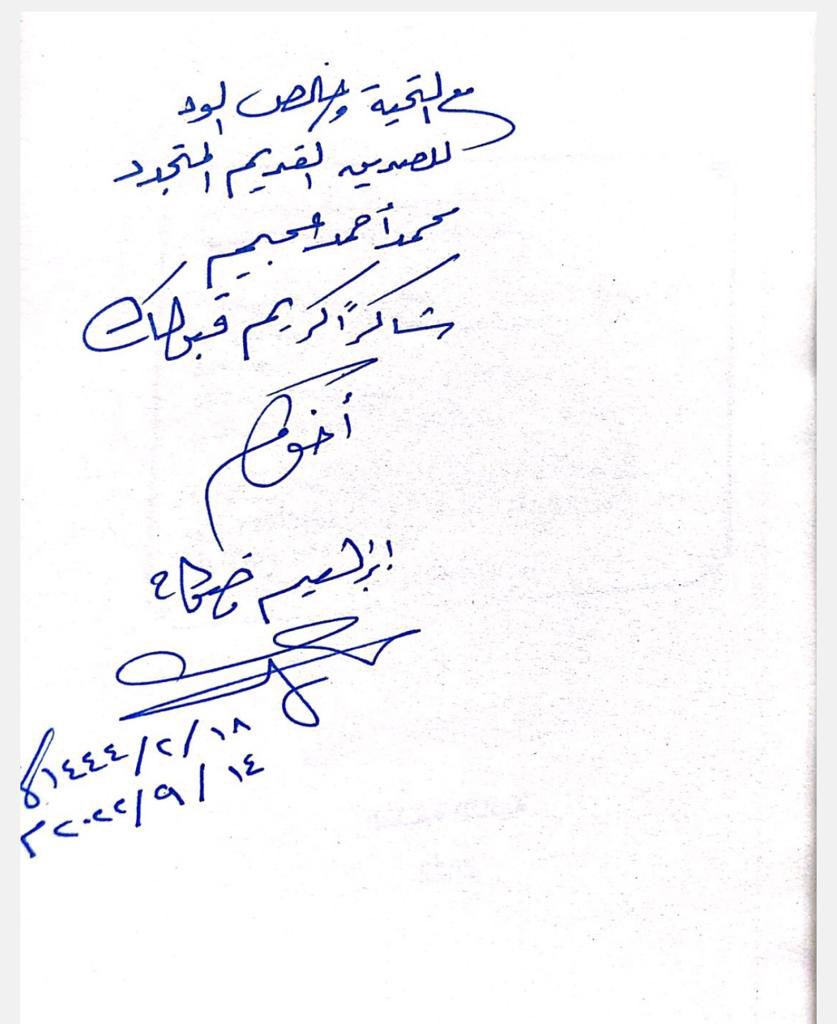 مع التحية وخالص الود
للصديق القديم المتجدد
محمد أحمد عجيم
شاكرًا كريم قبولك
أخوكم
إبراهيم
١٤٤٤/٢/١٨هـ
٢٠٢٢/٩/١٤م